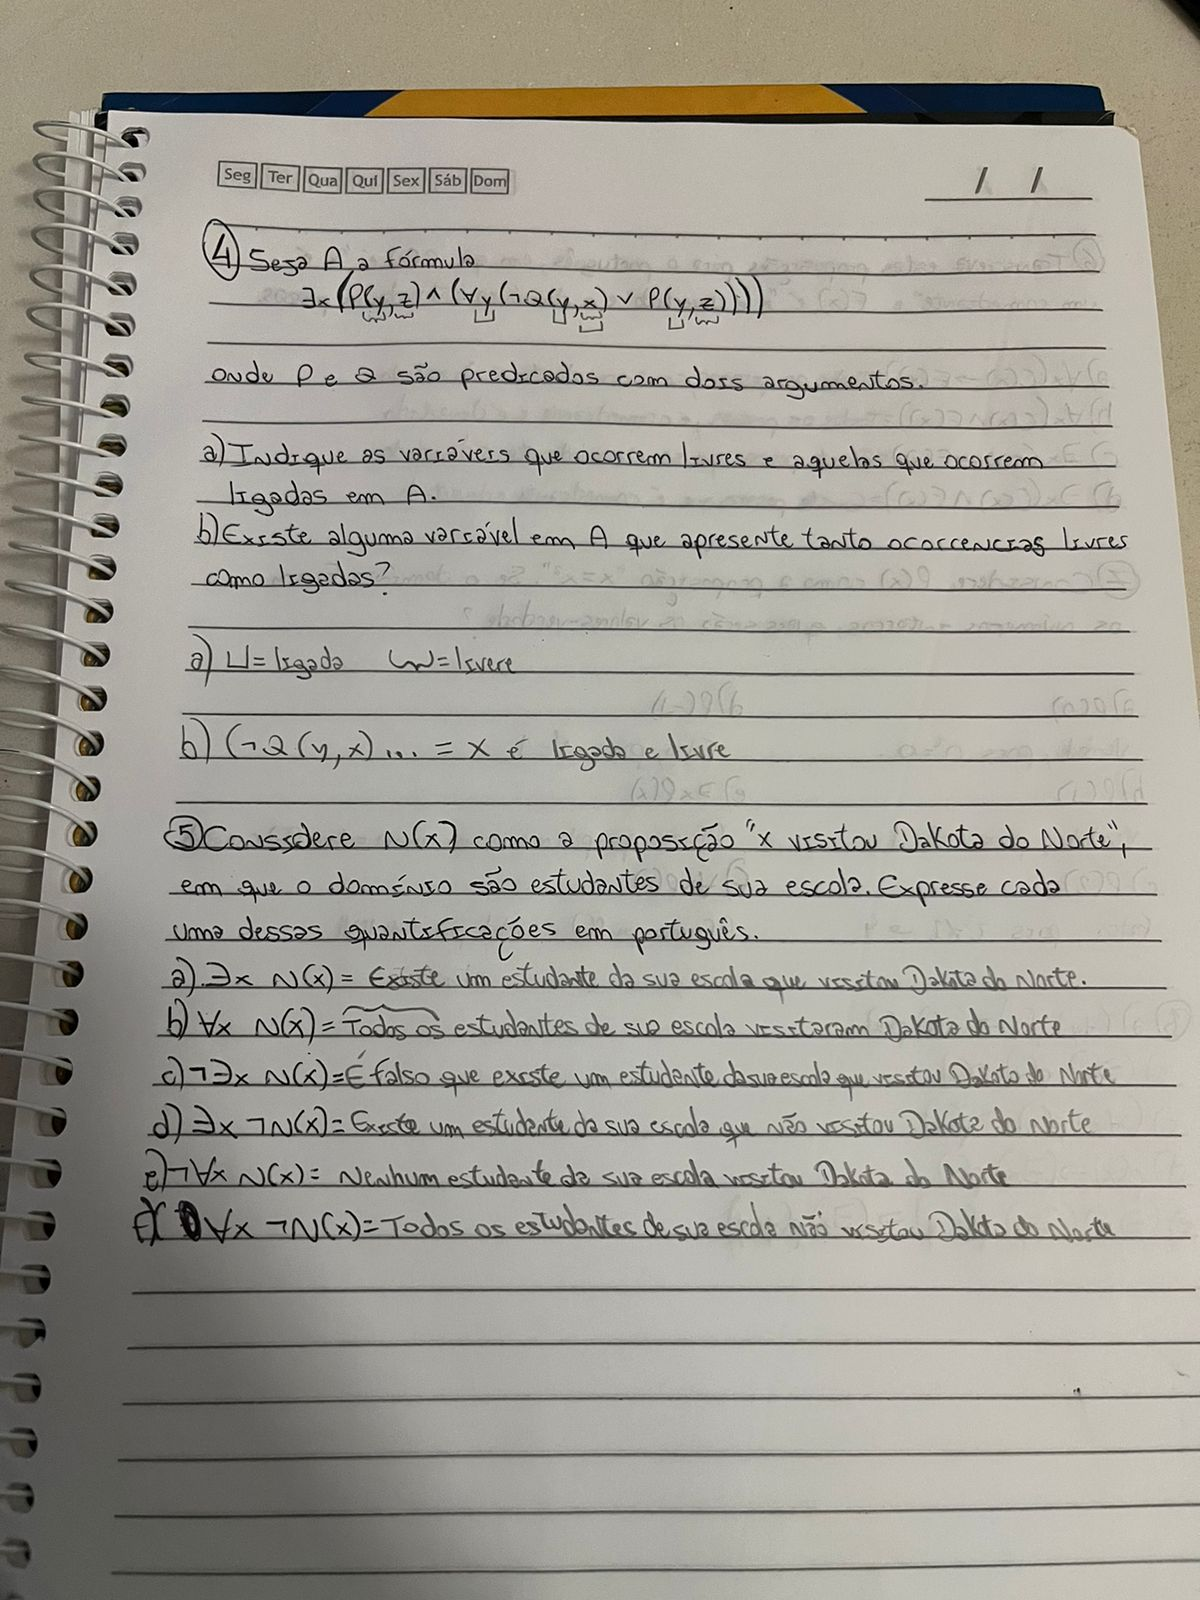 Seg Ter Qua Qui Sex Sáb Dom
/ /
4 Seja A, a fórmula
∃x(P(y,z)∧(∀y(¬Q(y,x)∨P(y,z))))
onde P e Q são predicados com dois argumentos.
a) Indique as variáveis que ocorrem livres e aquelas que ocorrem
ligadas em A.
b) Existe alguma variável em A que apresente tanto ocorrencias livres
como ligadas?
a) ⊔=ligada ω=livere
b) (¬Q(y,x)... = x é ligada e livre
5 Considere N(x) como a proposição "x visitou Dakota do Norte",
em que o domínio são estudantes de sua escola. Expresse cada
uma dessas quantificações em português.
a) ∃x N(x) = Existe um estudante da sua escola que visitou Dakota do Norte.
b) ∀x N(x) = Todos os estudantes de sua escola visitaram Dakota do Norte
c) ¬∃x N(x) = É falso que existe um estudante da sua escola que visitou Dakota do Norte
d) ∃x ¬N(x) = Existe um estudante da sua escola que não visitou Dakota do Norte
e) ¬∀x N(x) = Nenhum estudante da sua escola visitou Dakota do Norte
f) ∀x ¬N(x) = Todos os estudantes de sua escola não visitou Dakota do Norte